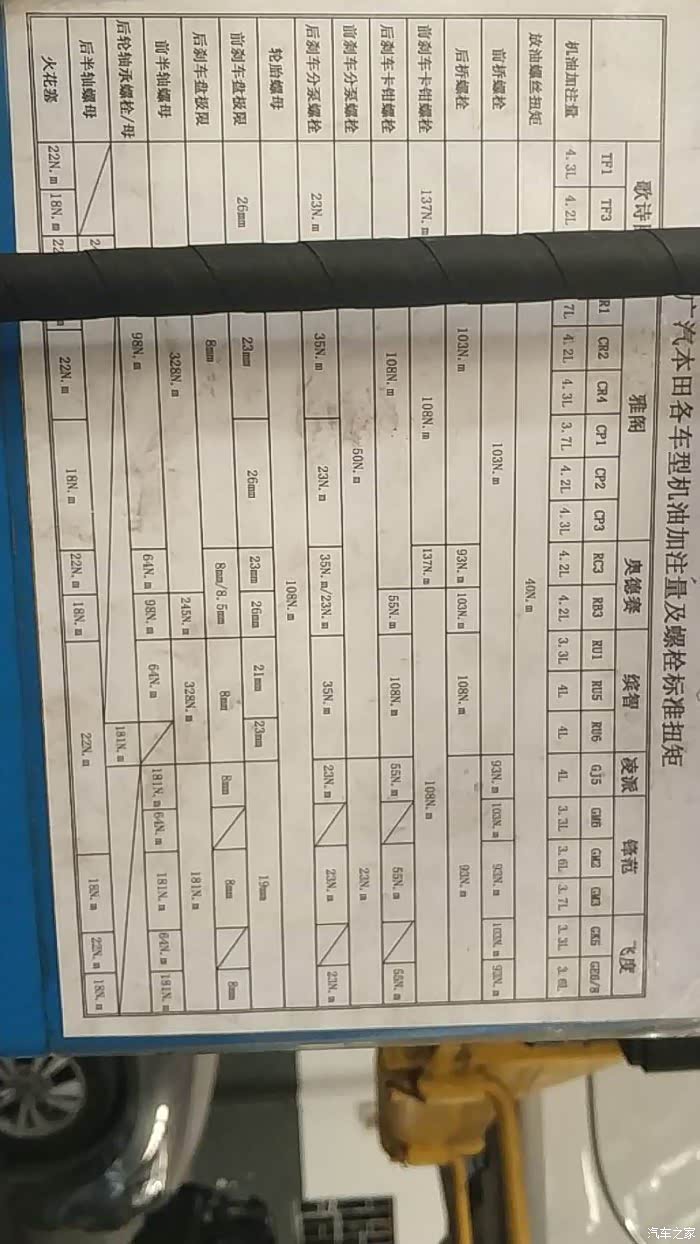 广汽本田各车型机油加注量及螺栓标准扭矩
歌诗 雅阁 奥德赛 缤智 凌派 锋范 飞度
TF1 TF3 R1 CR2 CR4 CP1 CP2 CP3 RC3 RB3 RU1 RU5 RU6 GJ5 GM6 GM2 GM3 GK5 GE6/8
机油加注量 4.3L 4.2L 7L 4.2L 4.3L 3.7L 4.2L 4.3L 4.2L 4.2L 3.3L 4L 4L 4L 3.3L 3.6L 3.7L 3.3L 3.6L
放油螺丝扭矩 40N.m
前桥螺栓 103N.m 93N.m 103N.m 93N.m 103N.m 93N.m
后桥螺栓 103N.m 93N.m 103N.m 108N.m 93N.m
前刹车卡钳螺栓 137N.m 108N.m 137N.m 108N.m
后刹车卡钳螺栓 108N.m 55N.m 108N.m 55N.m 55N.m 55N.m
前刹车分泵螺栓 50N.m 23N.m
后刹车分泵螺栓 23N.m 35N.m 23N.m 35N.m/23N.m 35N.m 23N.m 23N.m 23N.m
轮胎螺母 108N.m
前刹车盘极限 26mm 23mm 26mm 23mm 26mm 21mm 23mm 19mm
后刹车盘极限 8mm 8mm/8.5mm 8mm 8mm 8mm 8mm
前半轴螺母 328N.m 245N.m 328N.m 181N.m
后轮轴承螺栓/母 98N.m 64N.m 98N.m 64N.m 181N.m 64N.m 181N.m 64N.m 181N.m
后半轴螺母 181N.m
火花塞 22N.m 18N.m 22N.m 18N.m 22N.m 18N.m 22N.m 18N.m 22N.m 18N.m
汽车之家